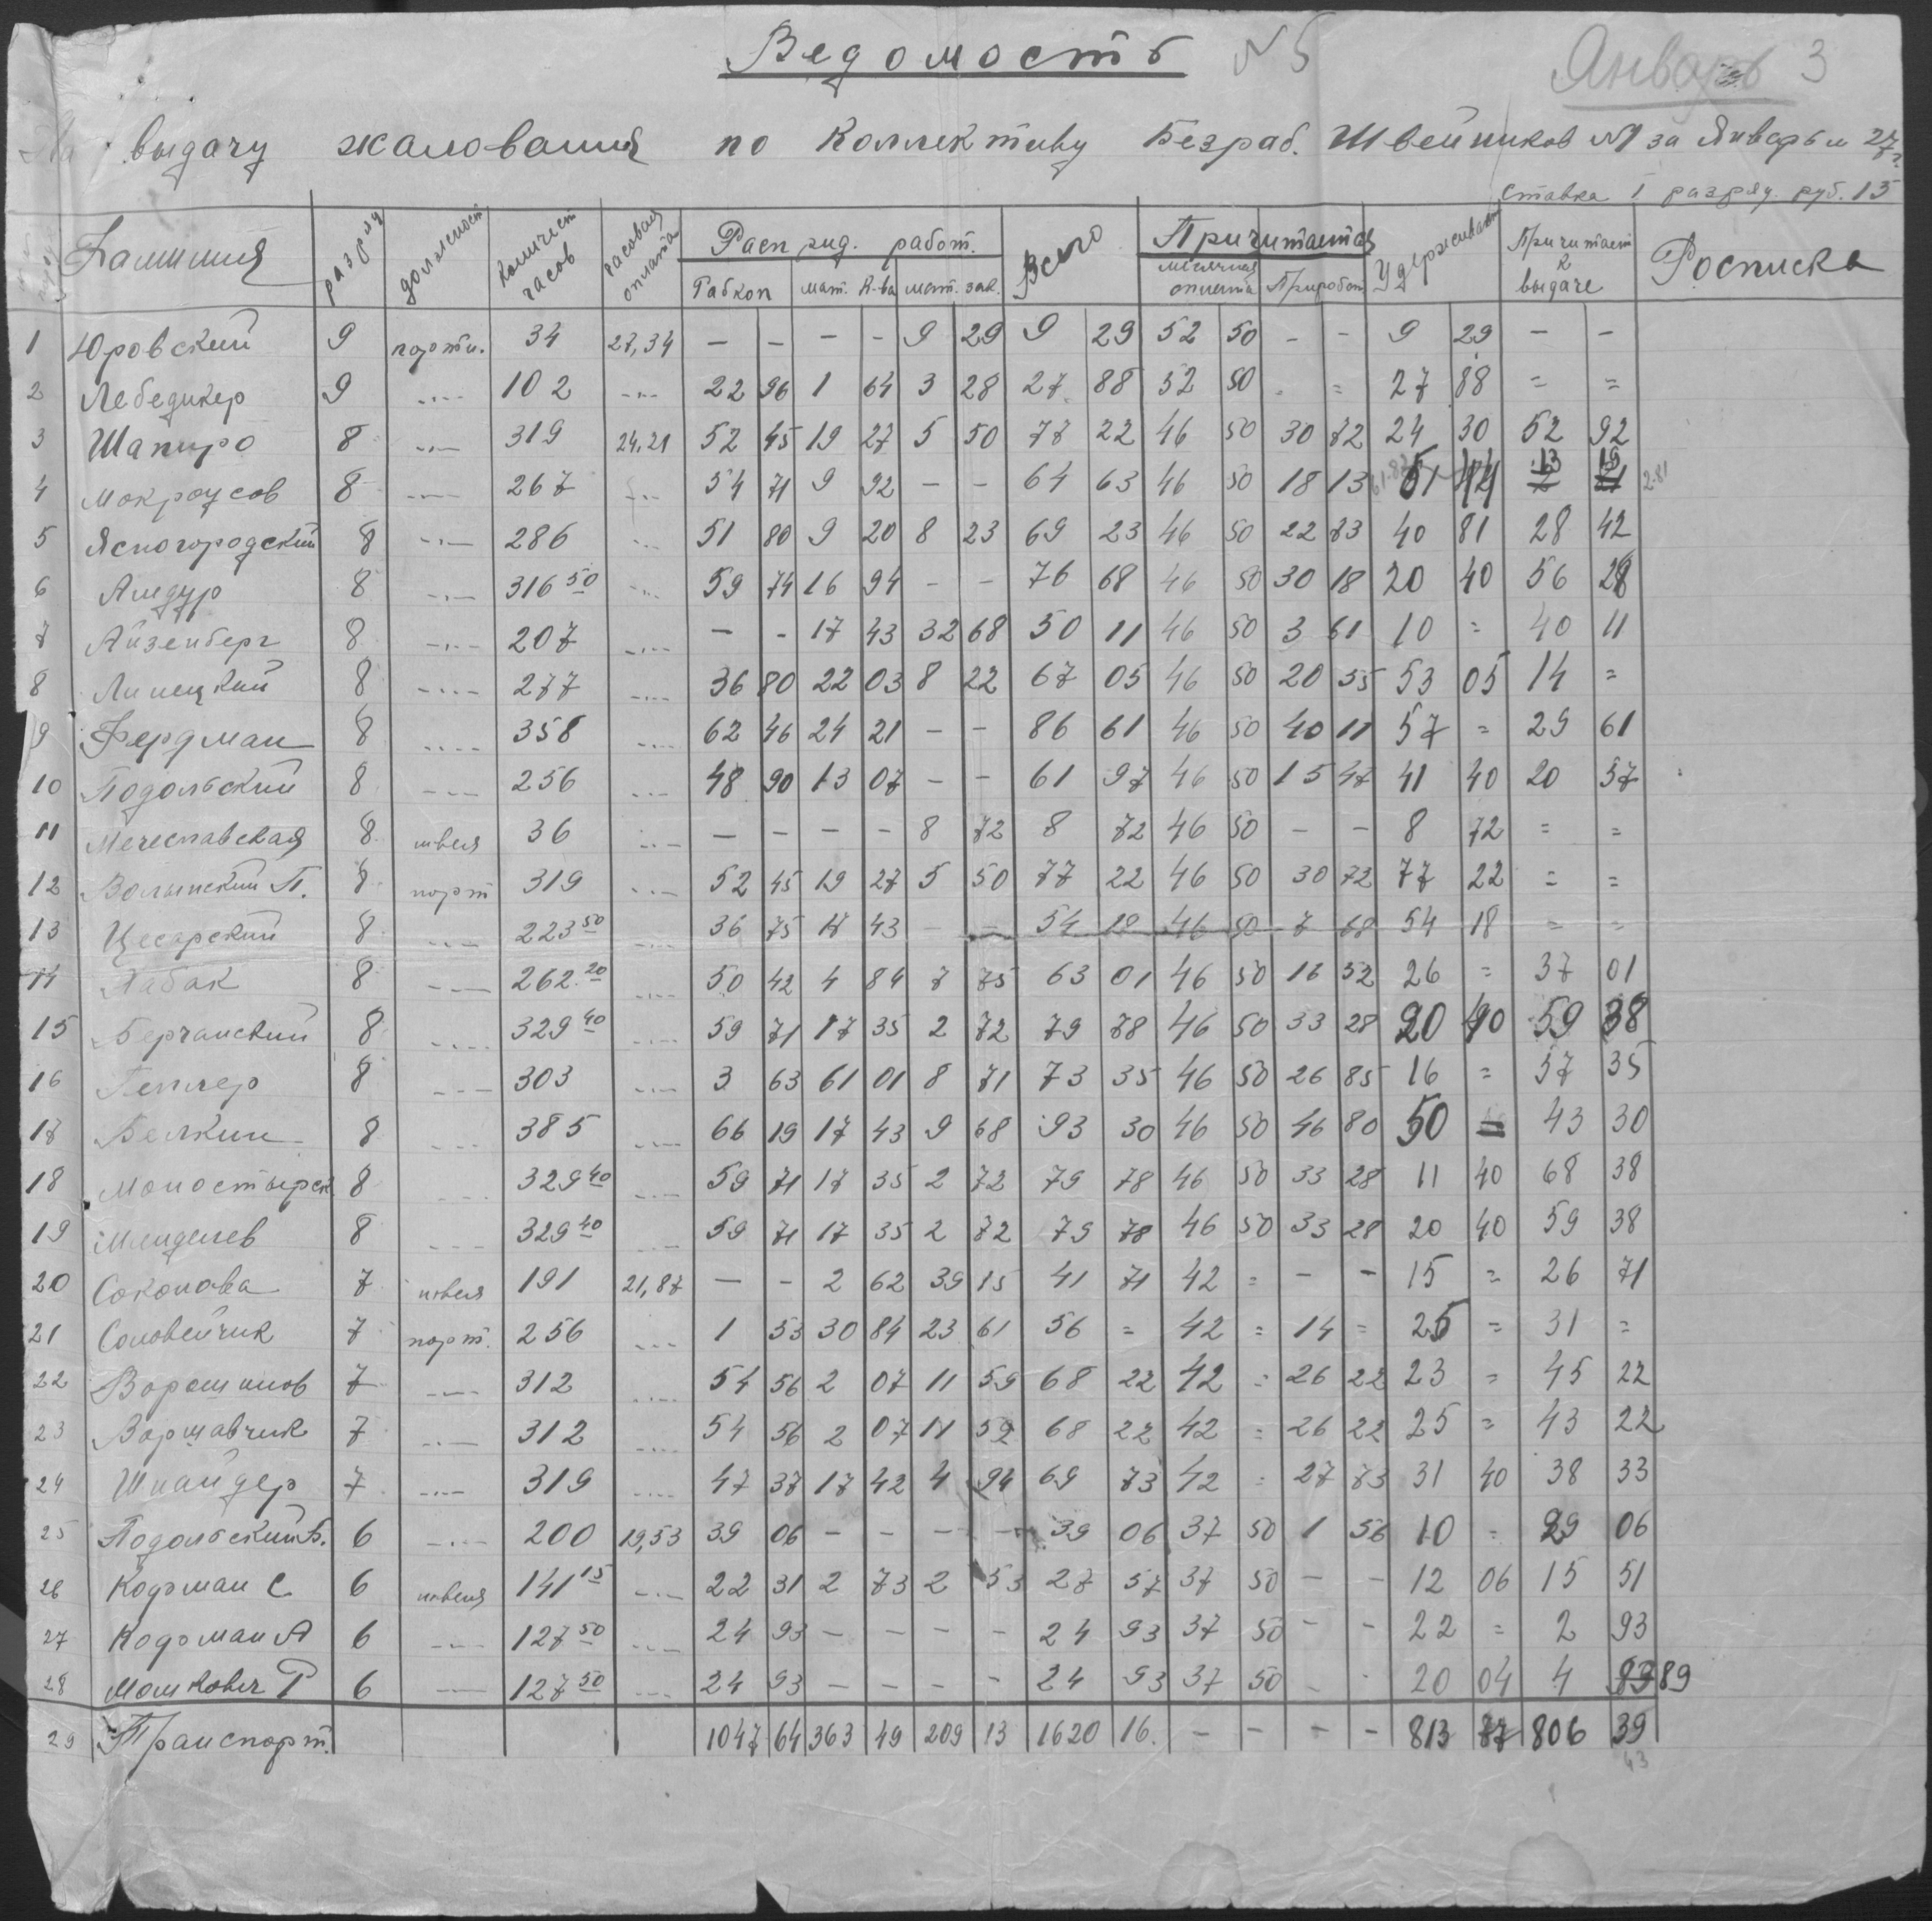 Ведомость №5
Январь 3
На выдачу жалования по Коллективу Безраб. Швейников №1 за Январь м 27 г.
ставка 1 разряд. руб. 15
Фамилия разряд должность Количест часов часовая оплата Расп рид. работ. Всего Причитается Удержива Причитает к выдаче Росписка
Рабкоп мат. К-ва мат. зак. месячная оплата Приробот
1 Юровский 9 портн. 34 27,34 — — — - 9 29 9 29 52 50 - - 9 29 — —
2 Лебедикер 9 102 22 96 1 64 3 28 27 88 52 50 - = 27 88 = =
3 Шапиро 8 319 24,21 52 45 19 27 5 50 77 22 46 50 30 72 24 30 52 92
4 Мокроусов 8 267 54 71 9 92 — — 64 63 46 50 18 13 61.82 51 44 13 19 2 21 2.81
5 Ясногородский 8 286 51 80 9 20 8 23 69 23 46 50 22 73 40 81 28 42
6 Амдур 8 316 50 59 74 16 94 - - 76 68 46 50 30 18 20 40 56 28
7 Айзенберг 8 207 — - 17 43 32 68 50 11 46 50 3 61 10 = 40 11
8 Липецкий 8 277 36 80 22 03 8 22 67 05 46 50 20 55 53 05 14 =
9 Фердман 8 358 62 46 24 21 — — 86 61 46 50 40 11 57 = 29 61
10 Подольский 8 256 48 90 13 07 — — 61 97 46 50 15 47 41 40 20 57
11 Мечеславская 8 швея 36 — — — - 8 72 8 72 46 50 — — 8 72 = =
12 Волынский П. 8 порт 319 52 45 19 27 5 50 77 22 46 50 30 72 77 22 = =
13 Цесарский 8 223 50 36 75 17 43 — — 54 18 46 50 7 68 54 18 = =
14 Табак 8 262.20 50 42 4 84 7 75 63 01 46 50 16 52 26 = 37 01
15 Берчанский 8 329 40 59 71 17 35 2 72 79 78 46 50 33 28 20 40 59 38
16 Геллер 8 303 3 63 61 01 8 71 73 35 46 50 26 85 16 = 57 35
17 Белкин 8 385 66 19 17 43 9 68 93 30 46 50 46 80 50 = 43 30
18 Монастырск 8 329 40 59 71 17 35 2 72 79 78 46 50 33 28 11 40 68 38
19 Миндлев 8 329 40 59 71 17 35 2 72 79 78 46 50 33 28 20 40 59 38
20 Соколова 7 швея 191 21,87 — - 2 62 39 15 41 71 42 = - - 15 = 26 71
21 Соловейчик 7 порт. 256 1 53 30 84 23 61 56 = 42 = 14 = 25 = 31 =
22 Ворошилов 7 312 54 56 2 07 11 59 68 22 42 = 26 22 23 = 45 22
23 Воршавчик 7 312 54 56 2 07 11 59 68 22 42 = 26 22 25 = 43 22
24 Шнайдер 7 319 47 37 17 42 4 94 69 73 42 = 27 73 31 40 38 33
25 Подольский Б. 6 200 19,53 39 06 — - — - 39 06 37 50 1 56 10 = 29 06
26 Кодоман С 6 швея 141 15 22 31 2 73 2 53 27 57 37 50 — - 12 06 15 51
27 Кодоман А 6 127 50 24 93 — - - - 24 93 37 50 - - 22 = 2 93
28 Мошкович Р 6 127 50 24 93 — - - - 24 93 37 50 - - 20 04 4 89 89
29 Транспорт. 1047 64 363 49 209 13 1620 16. — — — - 813 77 806 39
43